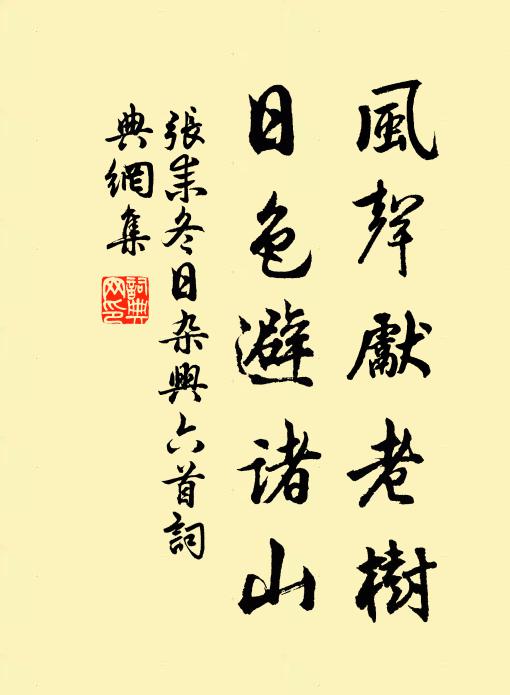 風聲獻老樹
日色避諸山
張耒冬日杂興六首詞
典網集
詞典
网印